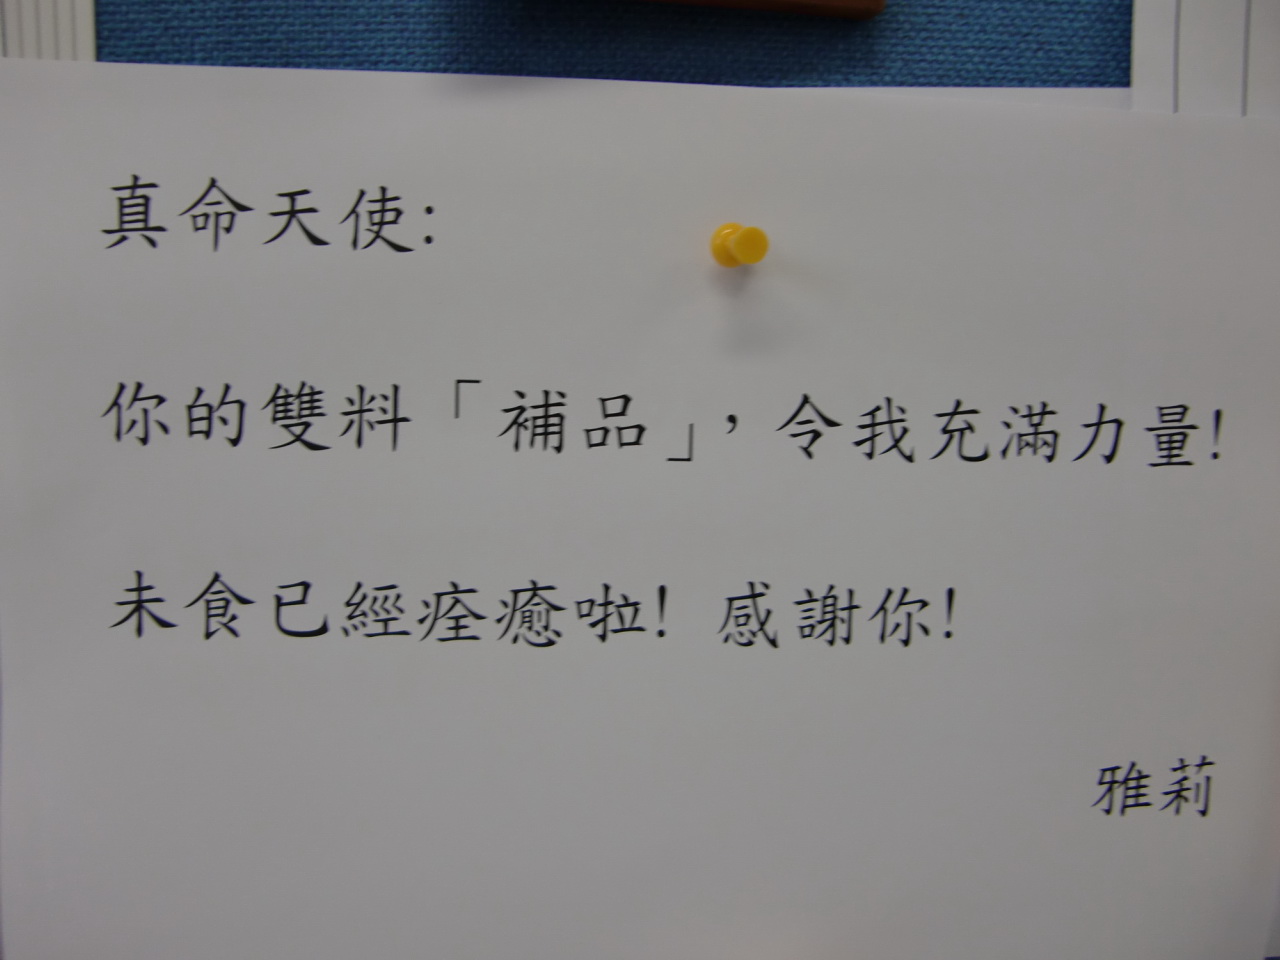 真命天使:
你的雙料「補品」，令我充滿力量!
未食已經痊癒啦! 感謝你!
雅莉